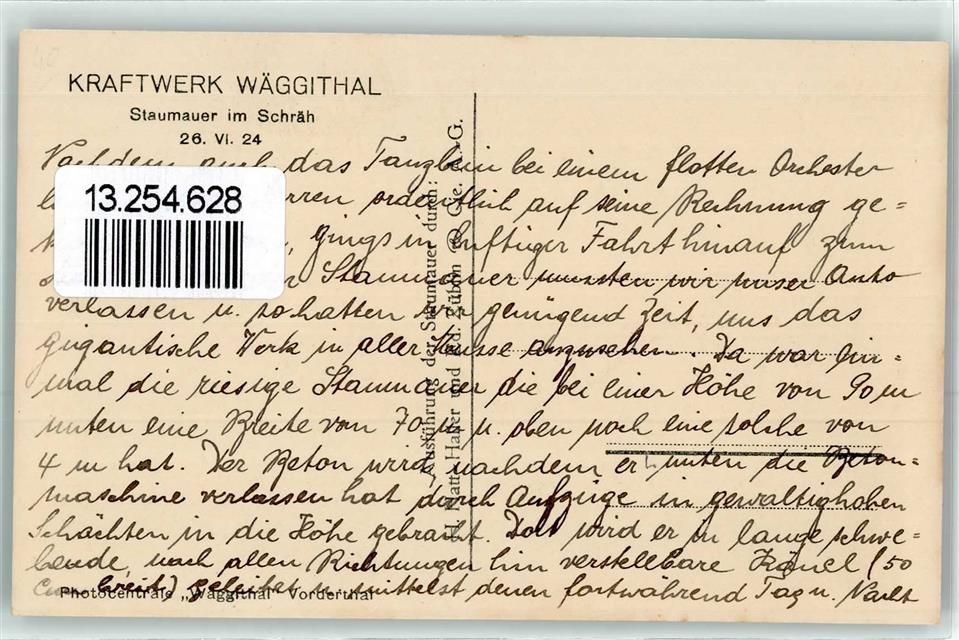 KRAFTWERK WÄGGITHAL
Staumauer im Schräh
26. VI. 24
13.254.628
Nachdem auch das Tanzbein bei einem flotten Orchester
ordentlich auf seine Rechnung ge=
gings in luftiger Fahrt hinauf zum
Staumauer mussten wir unser Auto
verlassen u. so hatten wir genügend Zeit, uns das
gigantische Werk in aller Musse anzusehen. Da war ein=
mal die riesige Staumauer die bei einer Höhe von 90 m
unten eine Breite von 70 m u. oben noch eine solche von
4 m hat. Der Beton wird nachdem er unten die Beton=
maschine verlassen hat durch Aufzüge in gewaltig hohen
Schächten in die Höhe gebracht. Dort wird er in lange schwe=
bende, nach allen Richtungen hin verstellbare Känel (50
cm breit) geleitet u. mittelst denen fortwährend Tag u. Nacht
Ausführung der Staumauer durch:
H. Hatt-Haller und Ed. Züblin & Cie. A.-G.
Photocentrale „Wäggithal" Vorderthal